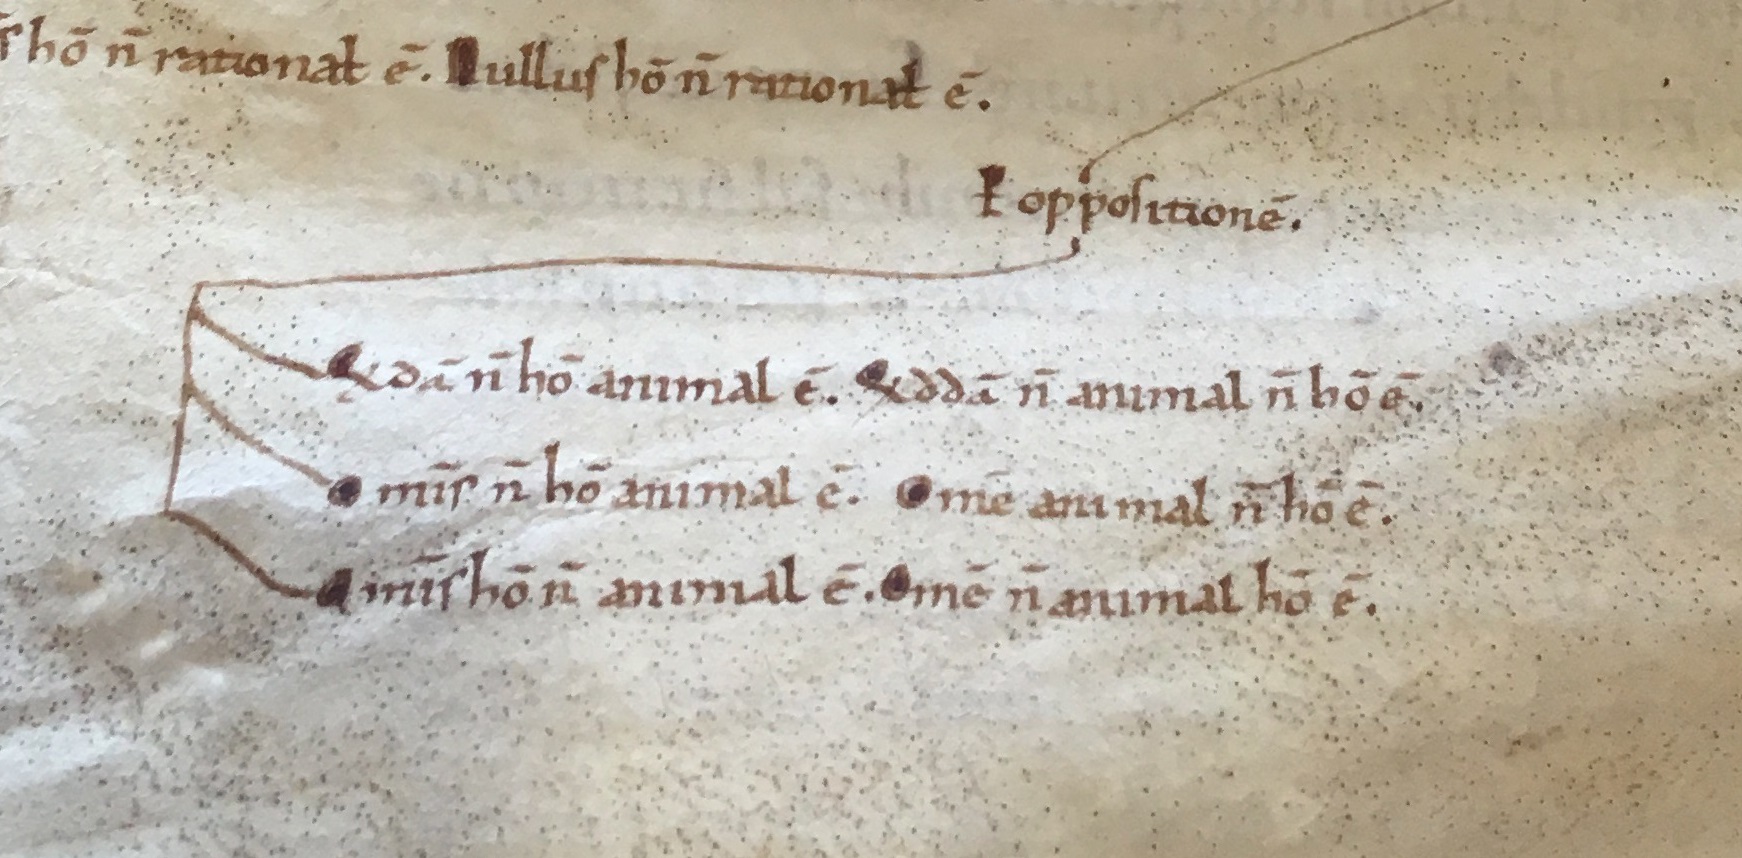 ſ hō n̄ rationaƚ ē. Nulluſ hō n̄ rationaƚ ē.
P̵ oppoſitionē.
Qdā n̄ hō animal ē. Qddā n̄ animal n̄ hō ē.
Omīſ n̄ hō animal ē. Omē animal n̄ hō ē.
Omīſ hō n̄ animal ē. Omē n̄ animal hō ē.